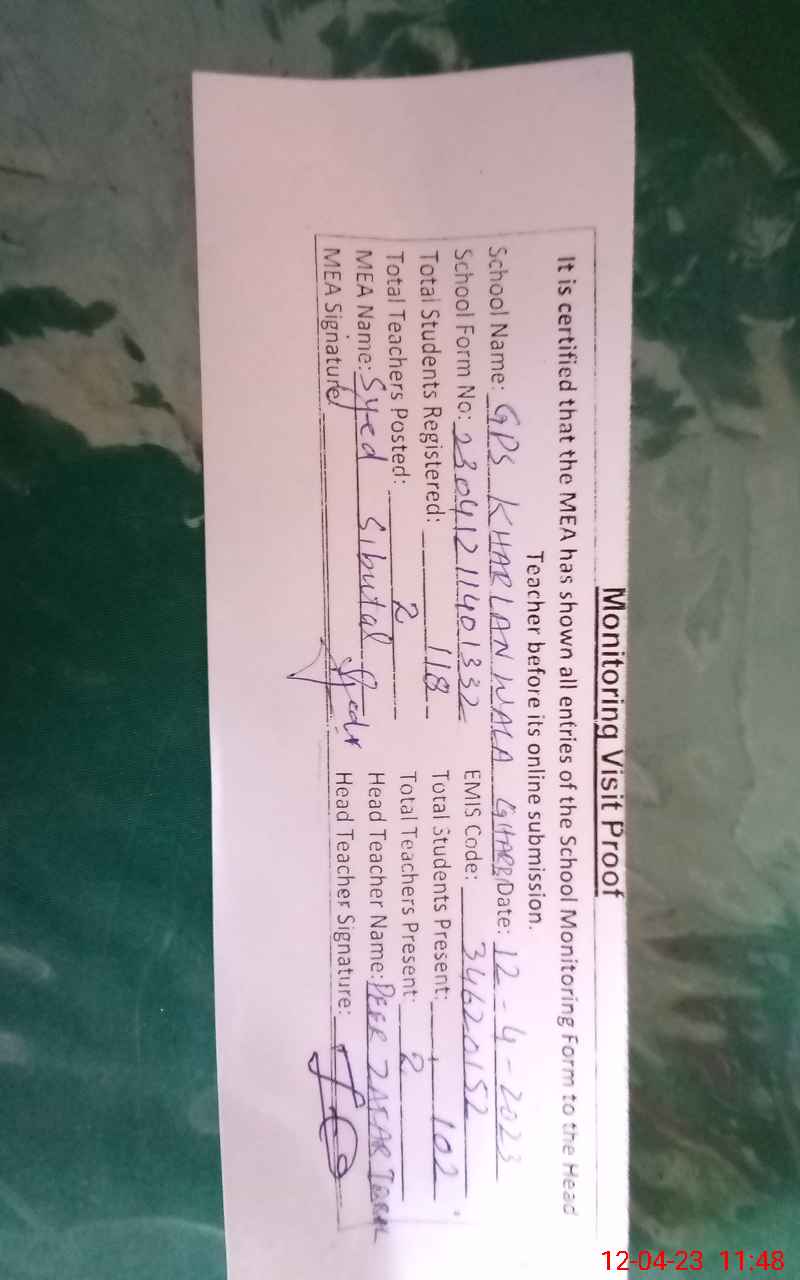 Monitoring Visit Proof
It is certified that the MEA has shown all entries of the School Monitoring Form to the Head
Teacher before its online submission.
School Name: GPS KHARLAN WALA GHARBI Date: 12-4-2023
School Form No: 2304121140 1332 EMIS Code: 34620152
Total Students Registered: 118 Total Students Present: 102
Total Teachers Posted: 2 Total Teachers Present: 2
MEA Name: Syed Sibutal Head Teacher Name: PEER ZAFAR
MEA Signature Head Teacher Signature:
12-04-23 11:48